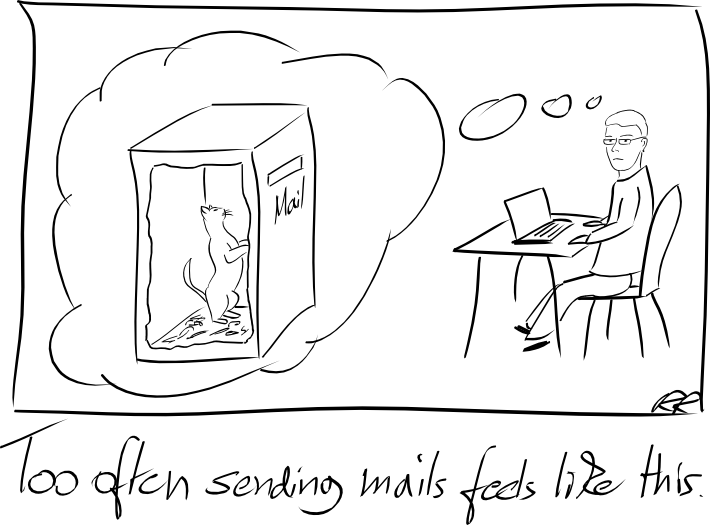 Mail
Too often sending mails feels like this.